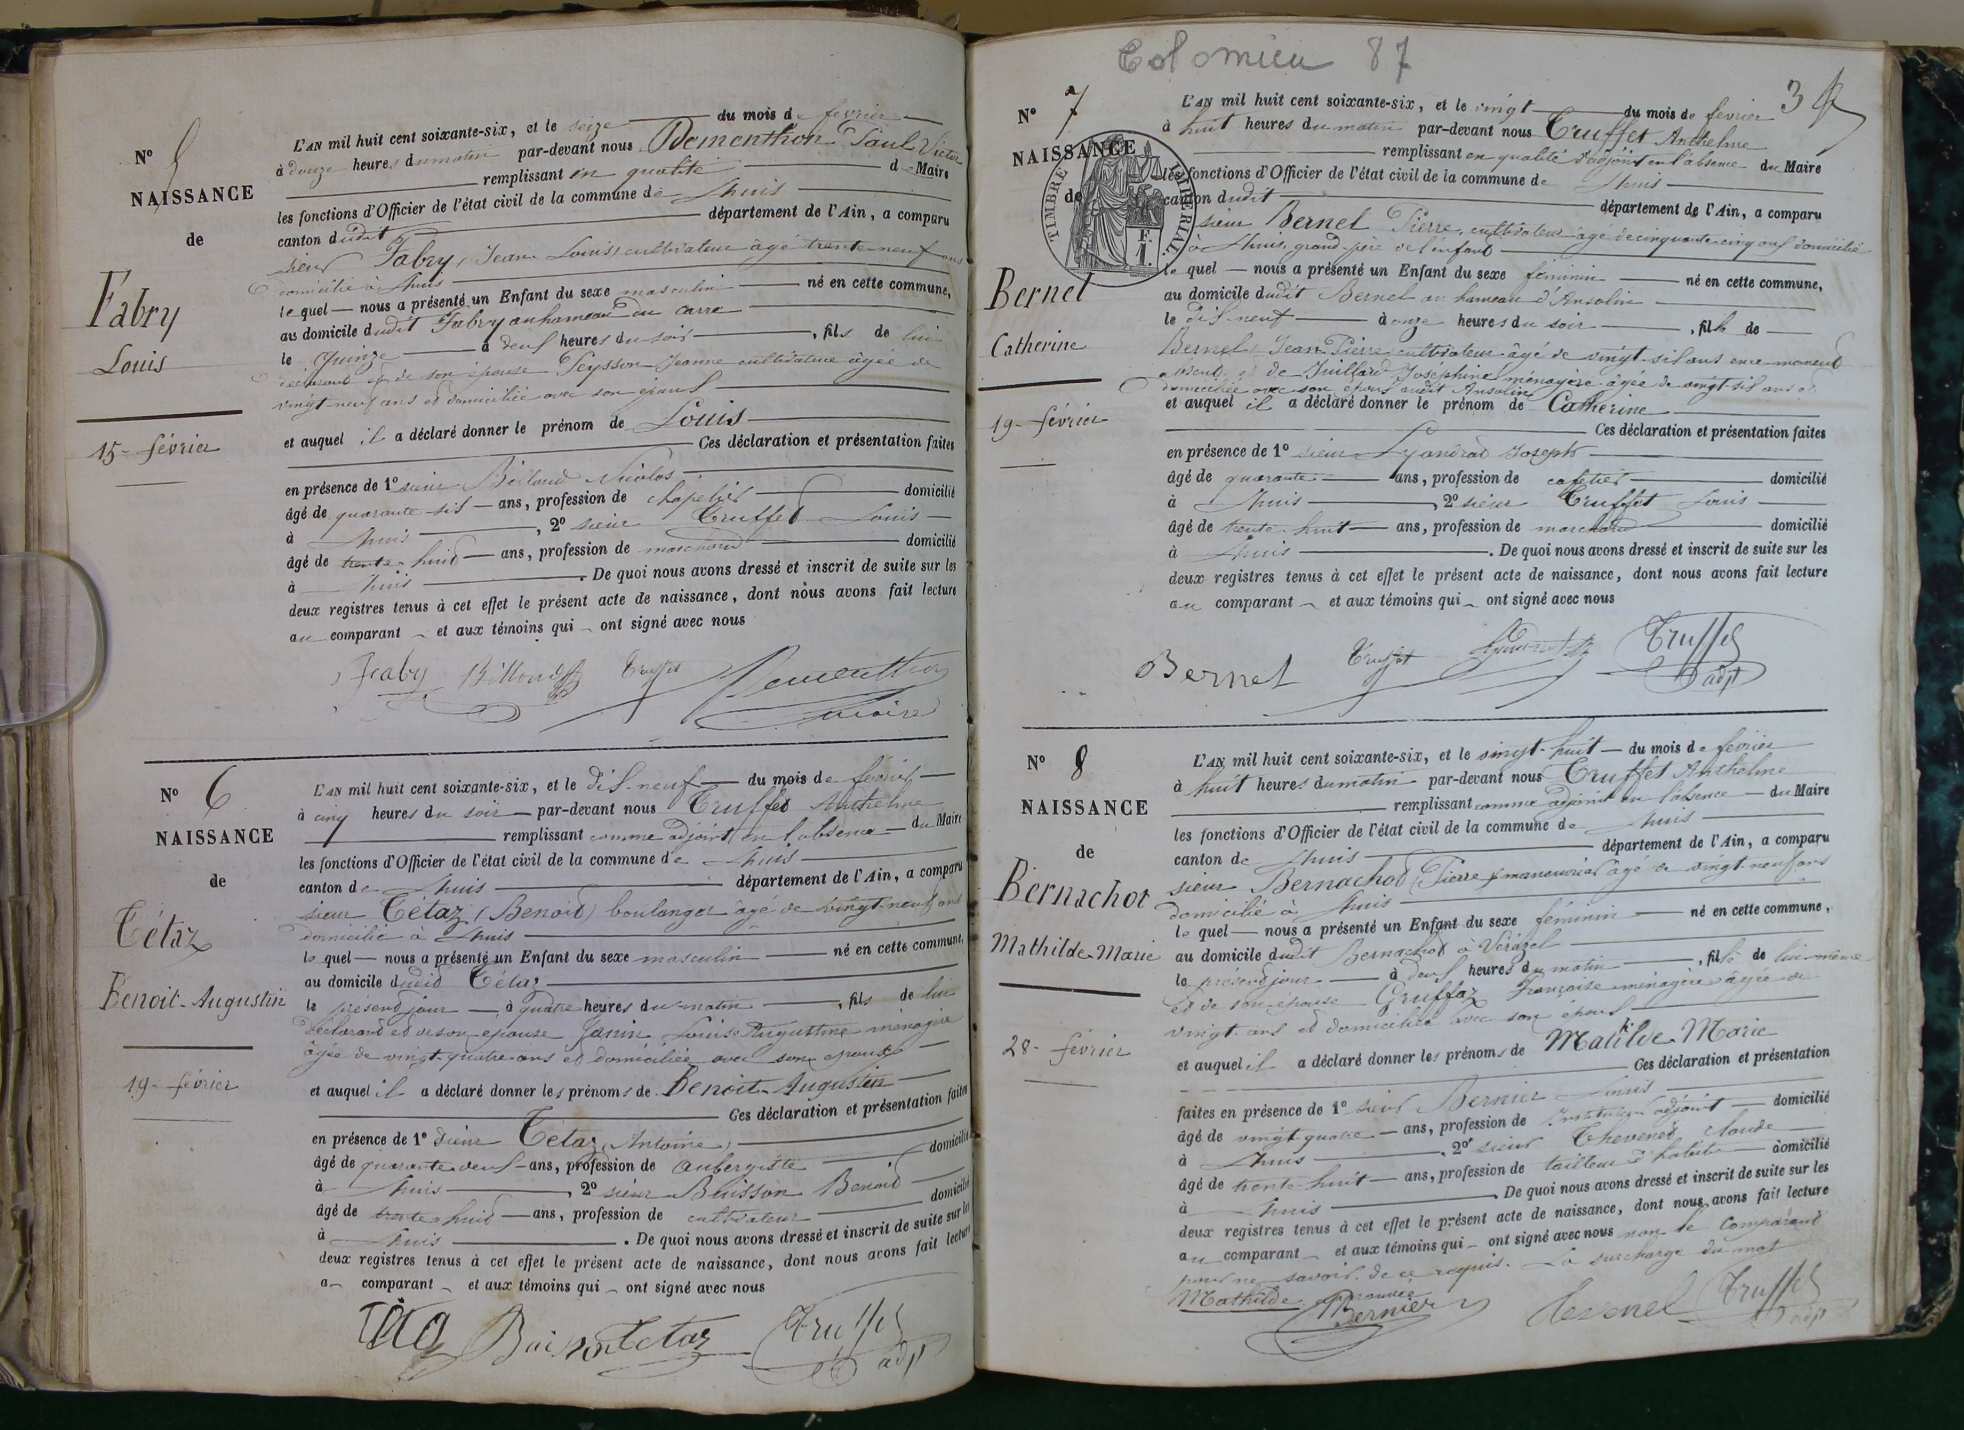 N° 5
NAISSANCE
de
Fabry
Louis
15 - février
L'AN mil huit cent soixante-six, et le seize du mois de fevrier
à douze heures du matin par-devant nous Dementhon Paul Victor
remplissant en qualité de Maire
les fonctions d'Officier de l'état civil de la commune de Lhuis
canton dudit département de l'Ain, a comparu
sieur Fabry (Jean Louis) cultivateur âgé trente-neuf ans
domicilié à Lhuis
lequel — nous a présenté un Enfant du sexe masculin né en cette commune,
au domicile dudit Fabry au hameau du carre
le quinze à deux heures du soir, fils de lui
déclarant et de son épouse Peysson Jeanne cultivatrice âgée de
vingt-neuf ans et domiciliée avec son époux
et auquel il a déclaré donner le prénom de Louis
Ces déclaration et présentation faites
en présence de 1° sieur Billoud Nicolas
âgé de quarante six — ans, profession de chapelier domicilié
à Lhuis, 2° sieur Truffet Louis
âgé de trente huit — ans, profession de marchand domicilié
à Lhuis. De quoi nous avons dressé et inscrit de suite sur les
deux registres tenus à cet effet le présent acte de naissance, dont nous avons fait lecture
au comparant et aux témoins qui ont signé avec nous
Faby Billoud Truffet Dementhon
maire
N° 6
NAISSANCE
de
Tétaz
Benoit-Augustin
19 - février
L'AN mil huit cent soixante-six, et le dix-neuf du mois de février
à cinq heures du soir — par-devant nous Truffet Anthelme
remplissant comme adjoint en l'absence du Maire
les fonctions d'Officier de l'état civil de la commune de Lhuis
canton de Lhuis département de l'Ain, a comparu
sieur Tétaz (Benoit) boulanger âgé de vingt-neuf ans
domicilié à Lhuis
lequel — nous a présenté un Enfant du sexe masculin né en cette commune,
au domicile dudit Tétaz
le présent jour à quatre heures du matin, fils de lui
déclarant et de son épouse Janin Louise Augustine ménagère
âgée de vingt-quatre ans et domiciliée avec son époux
et auquel il a déclaré donner les prénoms de Benoit-Augustin
Ces déclaration et présentation faites
en présence de 1° sieur Tétaz (Antoine)
âgé de quarante-deux — ans, profession de aubergiste domicilié
à Lhuis, 2° sieur Buisson Benoit
âgé de trente huit — ans, profession de cultivateur domicilié
à Lhuis. De quoi nous avons dressé et inscrit de suite sur les
deux registres tenus à cet effet le présent acte de naissance, dont nous avons fait lecture
au comparant et aux témoins qui ont signé avec nous
Buisson Tetaz Truffet
adjt
Colomieu 87
3
N° 7
NAISSANCE
de
TIMBRE IMPÉRIAL
F.
1.
Bernet
Catherine
19 - février
L'AN mil huit cent soixante-six, et le vingt du mois de fevrier
à huit heures du matin par-devant nous Truffet Anthelme
remplissant en qualité d'adjoint en l'absence du Maire
les fonctions d'Officier de l'état civil de la commune de Lhuis
canton dudit département de l'Ain, a comparu
sieur Bernet Pierre, cultivateur âgé de cinquante-cinq ans domicilié
à Lhuis, grand-père de l'enfant
lequel — nous a présenté un Enfant du sexe féminin né en cette commune,
au domicile dudit Bernet au hameau d'Ansolin
le dix-neuf à onze heures du soir, fille de
Bernet, Jean-Pierre, cultivateur âgé de vingt-six ans en ce moment
absent et de Juillard Josephine, ménagère âgée de vingt-six ans et
domiciliée avec son époux audit Ansolin
et auquel il a déclaré donner le prénom de Catherine
Ces déclaration et présentation faites
en présence de 1° sieur Lyandrat Joseph
âgé de quarante ans, profession de cafetier domicilié
à Lhuis, 2° sieur Truffet Louis
âgé de trente-huit ans, profession de marchand domicilié
à Lhuis. De quoi nous avons dressé et inscrit de suite sur les
deux registres tenus à cet effet le présent acte de naissance, dont nous avons fait lecture
au comparant et aux témoins qui ont signé avec nous
Bernet Truffet Truffet
adjt
N° 8
NAISSANCE
de
Bernachot
Mathilde-Marie
28 - février
L'AN mil huit cent soixante-six, et le vingt-huit du mois de février
à huit heures du matin par-devant nous Truffet Anthelme
remplissant comme adjoint en l'absence du Maire
les fonctions d'Officier de l'état civil de la commune de Lhuis
canton de Lhuis département de l'Ain, a comparu
sieur Bernachot (Pierre) manouvrier âgé de vingt-neuf ans
domicilié à Lhuis
lequel — nous a présenté un Enfant du sexe féminin né en cette commune,
au domicile dudit Bernachot à
le présent jour à deux heures du matin, fille de lui-même
et de son épouse Gruffaz Françoise ménagère âgée de
vingt-ans et domiciliée avec son époux
et auquel il a déclaré donner les prénoms de Mathilde-Marie
Ces déclaration et présentation
faites en présence de 1° sieur Bernier Louis
âgé de vingt-quatre ans, profession de instituteur adjoint domicilié
à Lhuis, 2° sieur Thevenet Claude
âgé de trente-huit ans, profession de tailleur d'habits domicilié
à Lhuis. De quoi nous avons dressé et inscrit de suite sur les
deux registres tenus à cet effet le présent acte de naissance, dont nous avons fait lecture
au comparant et aux témoins qui ont signé avec nous non le comparant
pour ne savoir de ce requis. La surcharge du mot
Mathilde approuvée
Bernier Tevenet Truffet
adjt